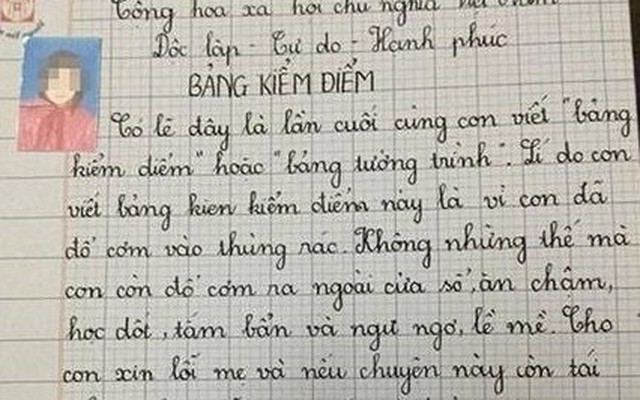 Cộng hoa xa hôi chu nghia
Dôc lâp - Tư do - Hanh phuc
BẢNG KIỂM ĐIỂM
Có lẽ đây là lần cuối cùng con viết "bảng
kiểm điểm" hoăc "bảng tường trình". Lí do con
viết bảng kien kiểm điểm này là vì con đã
đổ cơm vào thùng rác. Không nhưng thế mà
con còn đổ cơm ra ngoài cửa sổ, ăn châm,
hoc dốt, tắm bẩn và ngu ngơ, lề mề. Cho
con xin lỗi me và nếu chuyên này còn tái